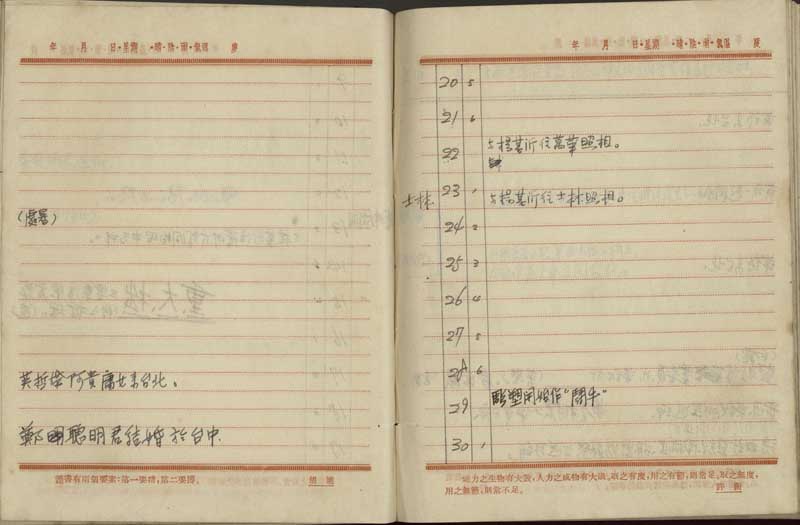 年 月 日·星期 ·晴·陰·雨·氣温 度
(處暑)
黃哲榮阿貴庸女來台北。
鄭聰明君結婚於台中
讀書有兩個要素:第一要精,第二要博。
年 月 日·星期 ·晴·陰·雨·氣温 度
20 5
21 6
22 与楊基炘往萬華照相。
士林 23 1 与楊基炘往士林照相。
24 2
25 3
26 4
27 5
28 6
29 雕塑開始作“鬪牛”
30 1
地力之生物有大數,人力之成物有大限,取之有度,用之有節,則常足,取之無度,
用之無節,則常不足。